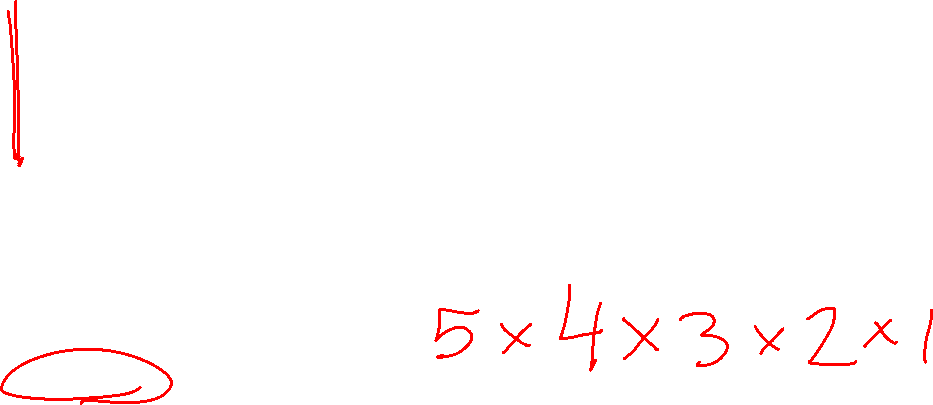 5 × 4 × 3 × 2 × 1